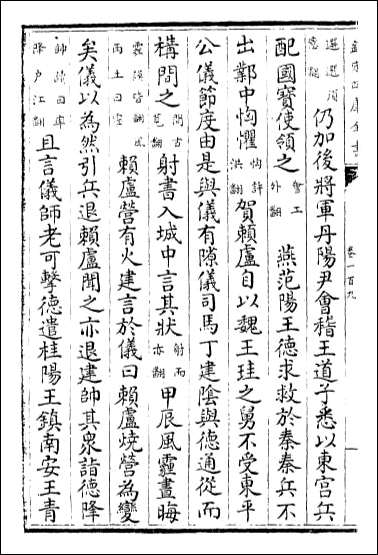 欽定四庫全書
卷一百九
仍加後將軍丹陽尹會稽王道子悉以東宮兵
配國寶使領之會工外翻燕范陽王德求救於秦秦兵不
出鄴中恟懼恟許洪翻賀賴盧自以魏王珪之舅不受東平
公儀節度由是與儀有隙儀司馬丁建陰與德通從而
構間之間古莧翻射書入城中言其狀射而亦翻甲辰風霾晝晦
霾謨皆翻雨土曰霾賴盧營有火建言於儀曰賴盧燒營為變
矣儀以為然引兵退賴盧聞之亦退建帥其衆詣德降
帥讀曰率降戶江翻且言儀師老可擊德遣桂陽王鎮南安王青